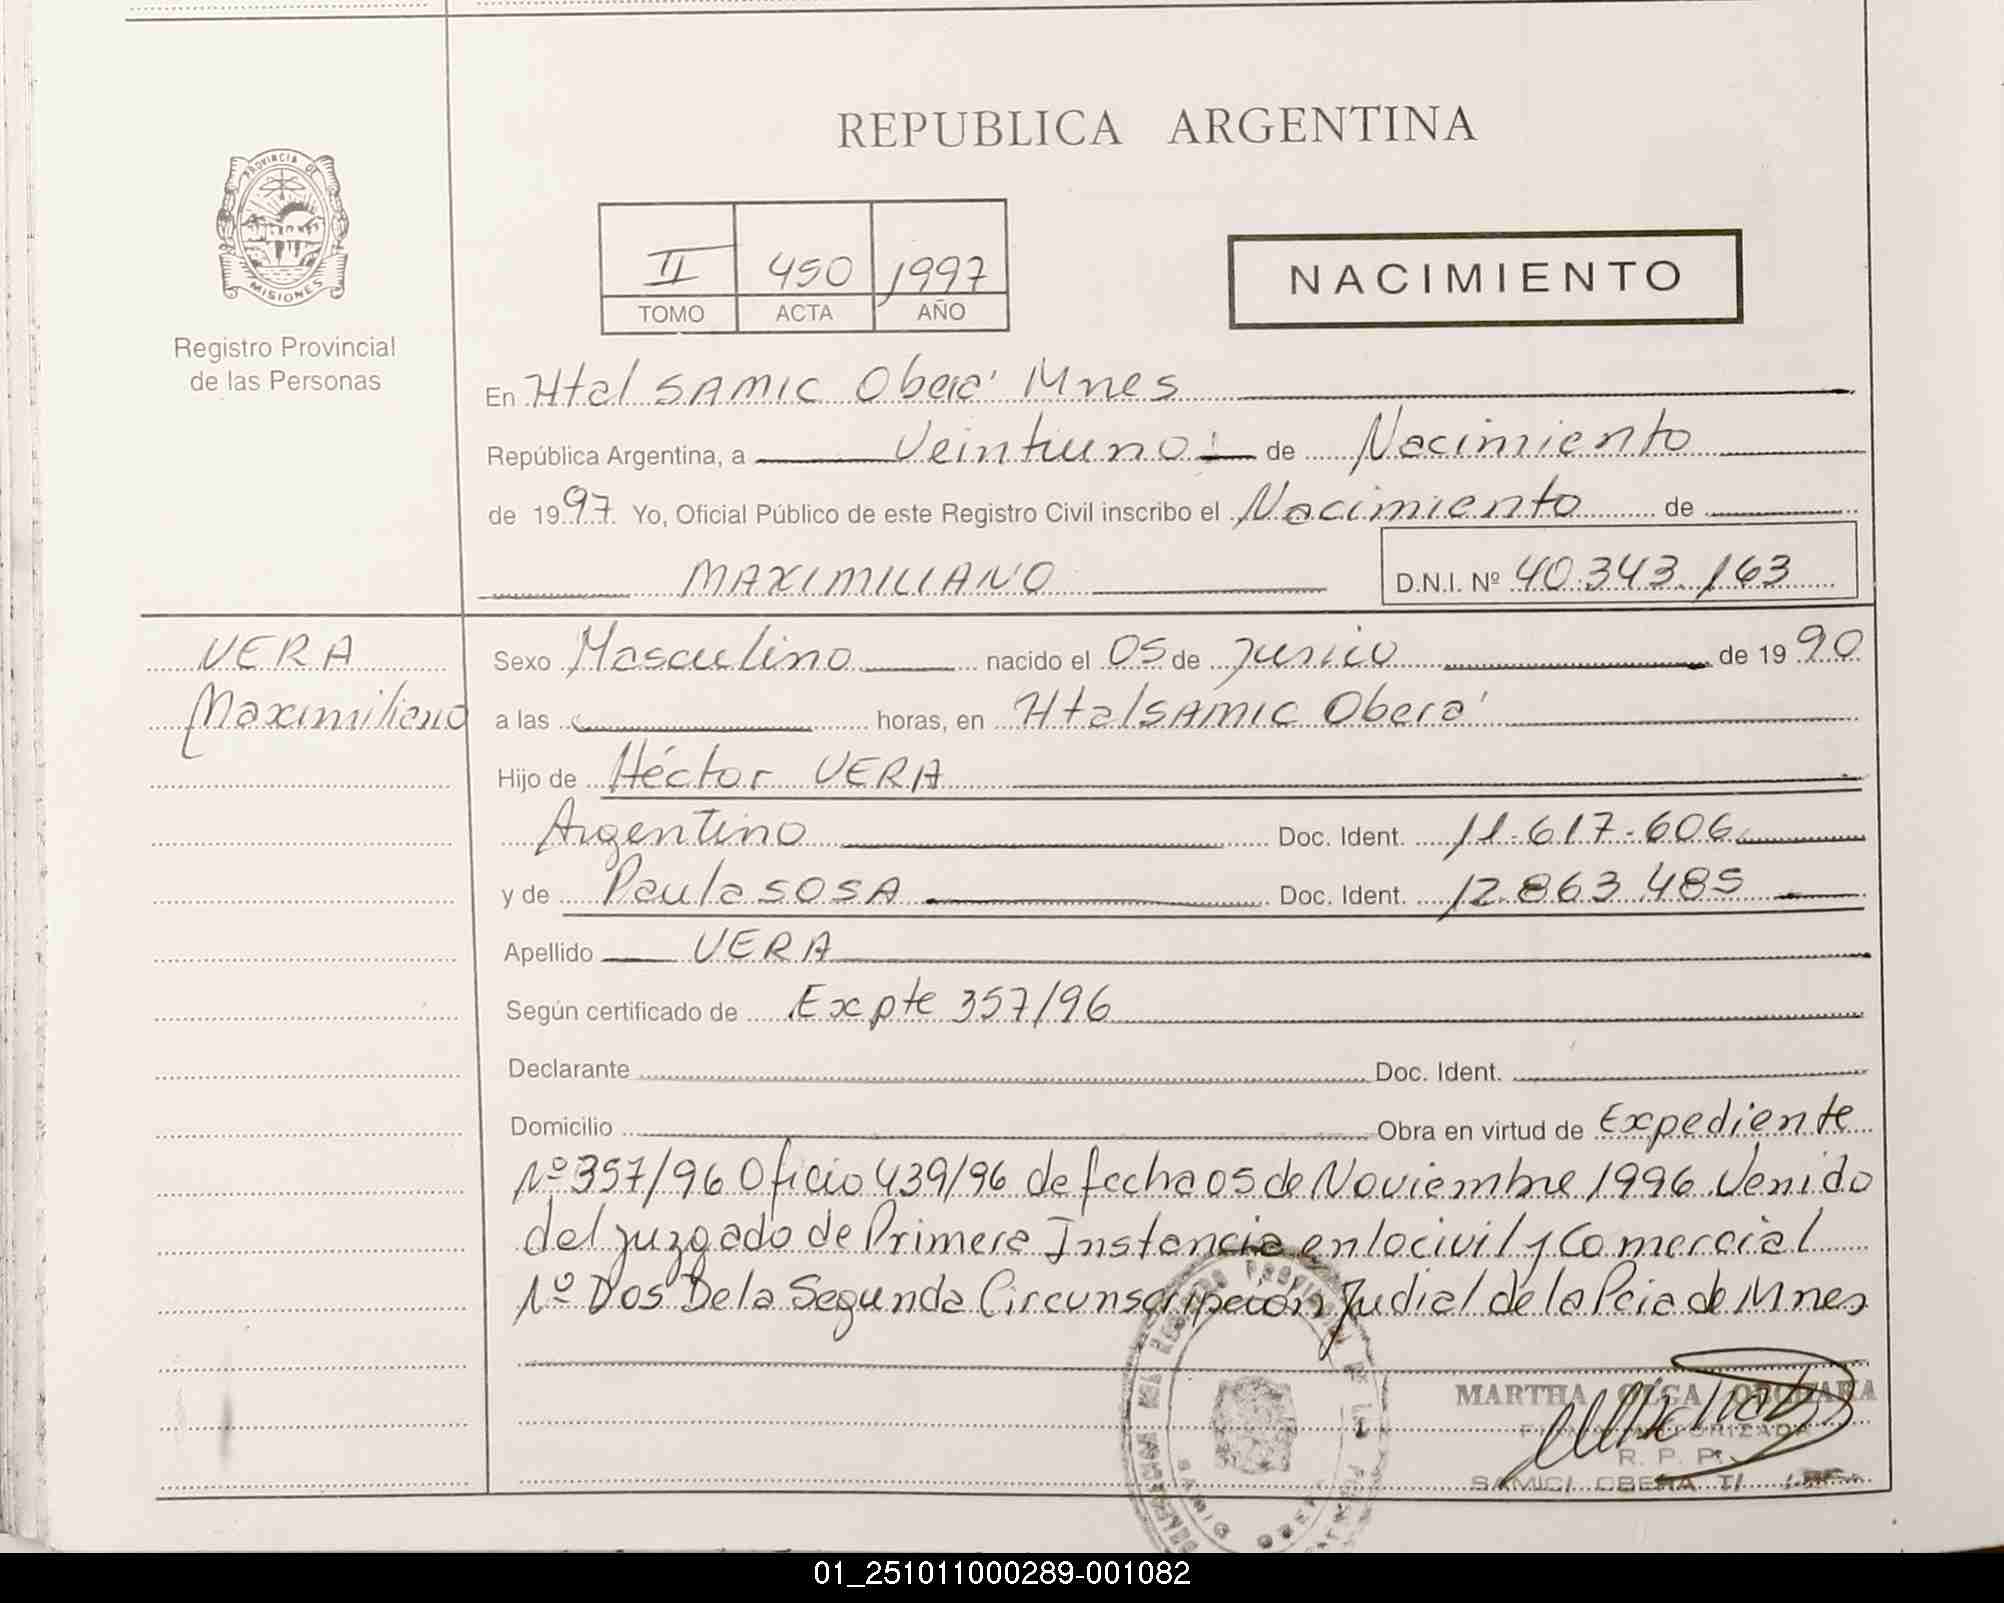 REPUBLICA ARGENTINA
PROVINCIA DE
MISIONES
Registro Provincial
de las Personas
II 450 1997
TOMO ACTA AÑO
NACIMIENTO
En Htal SAMIC Oberá Mnes
República Argentina, a Veintiuno de Nacimiento
de 1997 Yo, Oficial Público de este Registro Civil inscribo el Nacimiento de
MAXIMILIANO D.N.I. Nº 40.343.163
VERA
Maximiliano
Sexo Masculino nacido el 05 de Junio de 1990
a las horas, en Htal SAMIC Oberá
Hijo de Héctor VERA
Argentino Doc. Ident. 11.617.606
y de Paula SOSA Doc. Ident. 12.863.485
Apellido VERA
Según certificado de Expte 357/96
Declarante Doc. Ident.
Domicilio Obra en virtud de Expediente
Nº 357/96 Oficio 439/96 de fecha 05 de Noviembre 1996 Venido
del juzgado de Primera Instancia en lo civil y Comercial
Nº Dos De la Segunda Circunscripción Judial de la Pcia de Mnes
MARTHA OLGA
FIRMA AUTORIZADA
R. P. P.
SAMIC OBERA
01_251011000289-001082